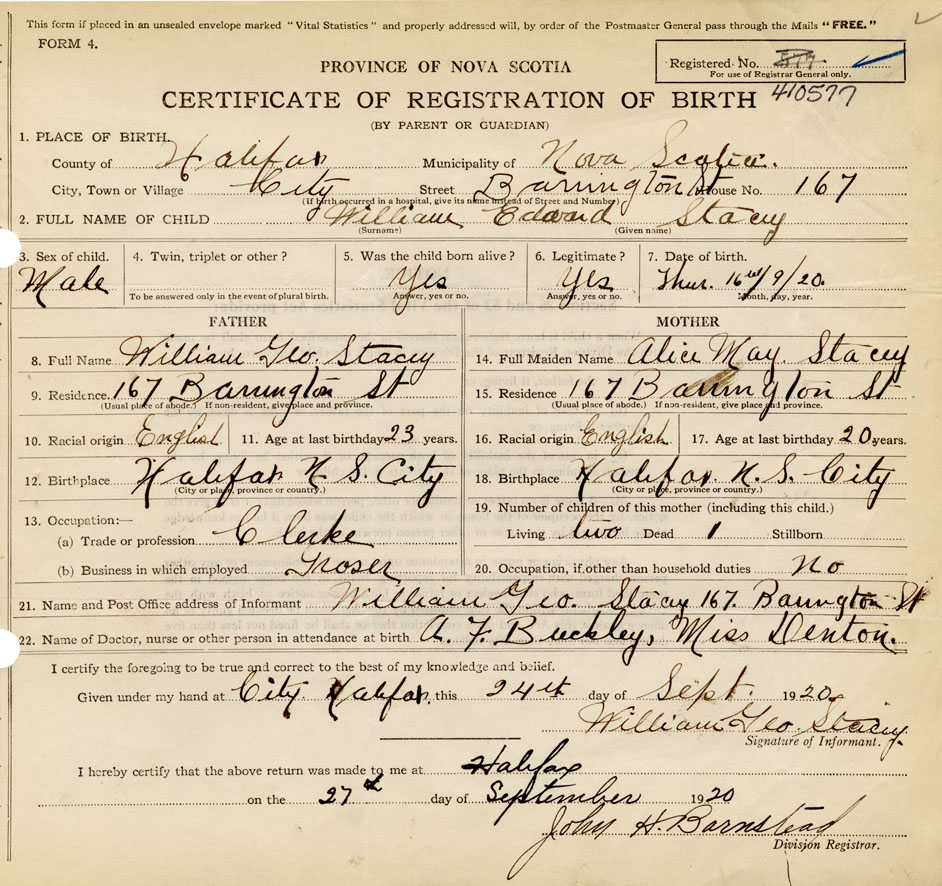 This form if placed in an unsealed envelope marked "Vital Statistics" and properly addressed will, by order of the Postmaster General pass through the Mails "FREE."
FORM 4.
Registered No.
For use of Registrar General only.
410577
PROVINCE OF NOVA SCOTIA
CERTIFICATE OF REGISTRATION OF BIRTH
(BY PARENT OR GUARDIAN)
1. PLACE OF BIRTH
County of Halifax Municipality of Nova Scotia.
City, Town or Village City Street Barrington St House No. 167
(If birth occurred in a hospital, give its name instead of Street and Number)
2. FULL NAME OF CHILD William Edward Stacey
(Surname) (Given name)
3. Sex of child. 4. Twin, triplet or other? 5. Was the child born alive? 6. Legitimate? 7. Date of birth.
Male Yes Yes Thur. 16 /9/20.
To be answered only in the event of plural birth. Answer, yes or no. Answer, yes or no. Month, day, year.
FATHER MOTHER
8. Full Name William Geo. Stacey 14. Full Maiden Name Alice May. Stacey
9. Residence. 167 Barrington St 15. Residence 167 Barrington St
(Usual place of abode.) If non-resident, give place and province. (Usual place of abode.) If non-resident, give place and province.
10. Racial origin English 11. Age at last birthday 23 years. 16. Racial origin English 17. Age at last birthday 20 years.
12. Birthplace Halifax N.S. City 18. Birthplace Halifax. N.S. City
(City or place, province or country.) (City or place, province or country.)
13. Occupation:— 19. Number of children of this mother (including this child.)
(a) Trade or profession Clerke Living two Dead 1 Stillborn
(b) Business in which employed Groser 20. Occupation, if other than household duties No
21. Name and Post Office address of Informant William Geo. Stacy 167. Barington St
22. Name of Doctor, nurse or other person in attendance at birth A. F. Buckley, Miss Denton.
I certify the foregoing to be true and correct to the best of my knowledge and belief.
Given under my hand at City Halifax. this 24th day of Sept. 1920
William Geo. Stacey.
Signature of Informant.
I hereby certify that the above return was made to me at Halifax
on the 27th day of September 1920
John H. Barnstead
Division Registrar.